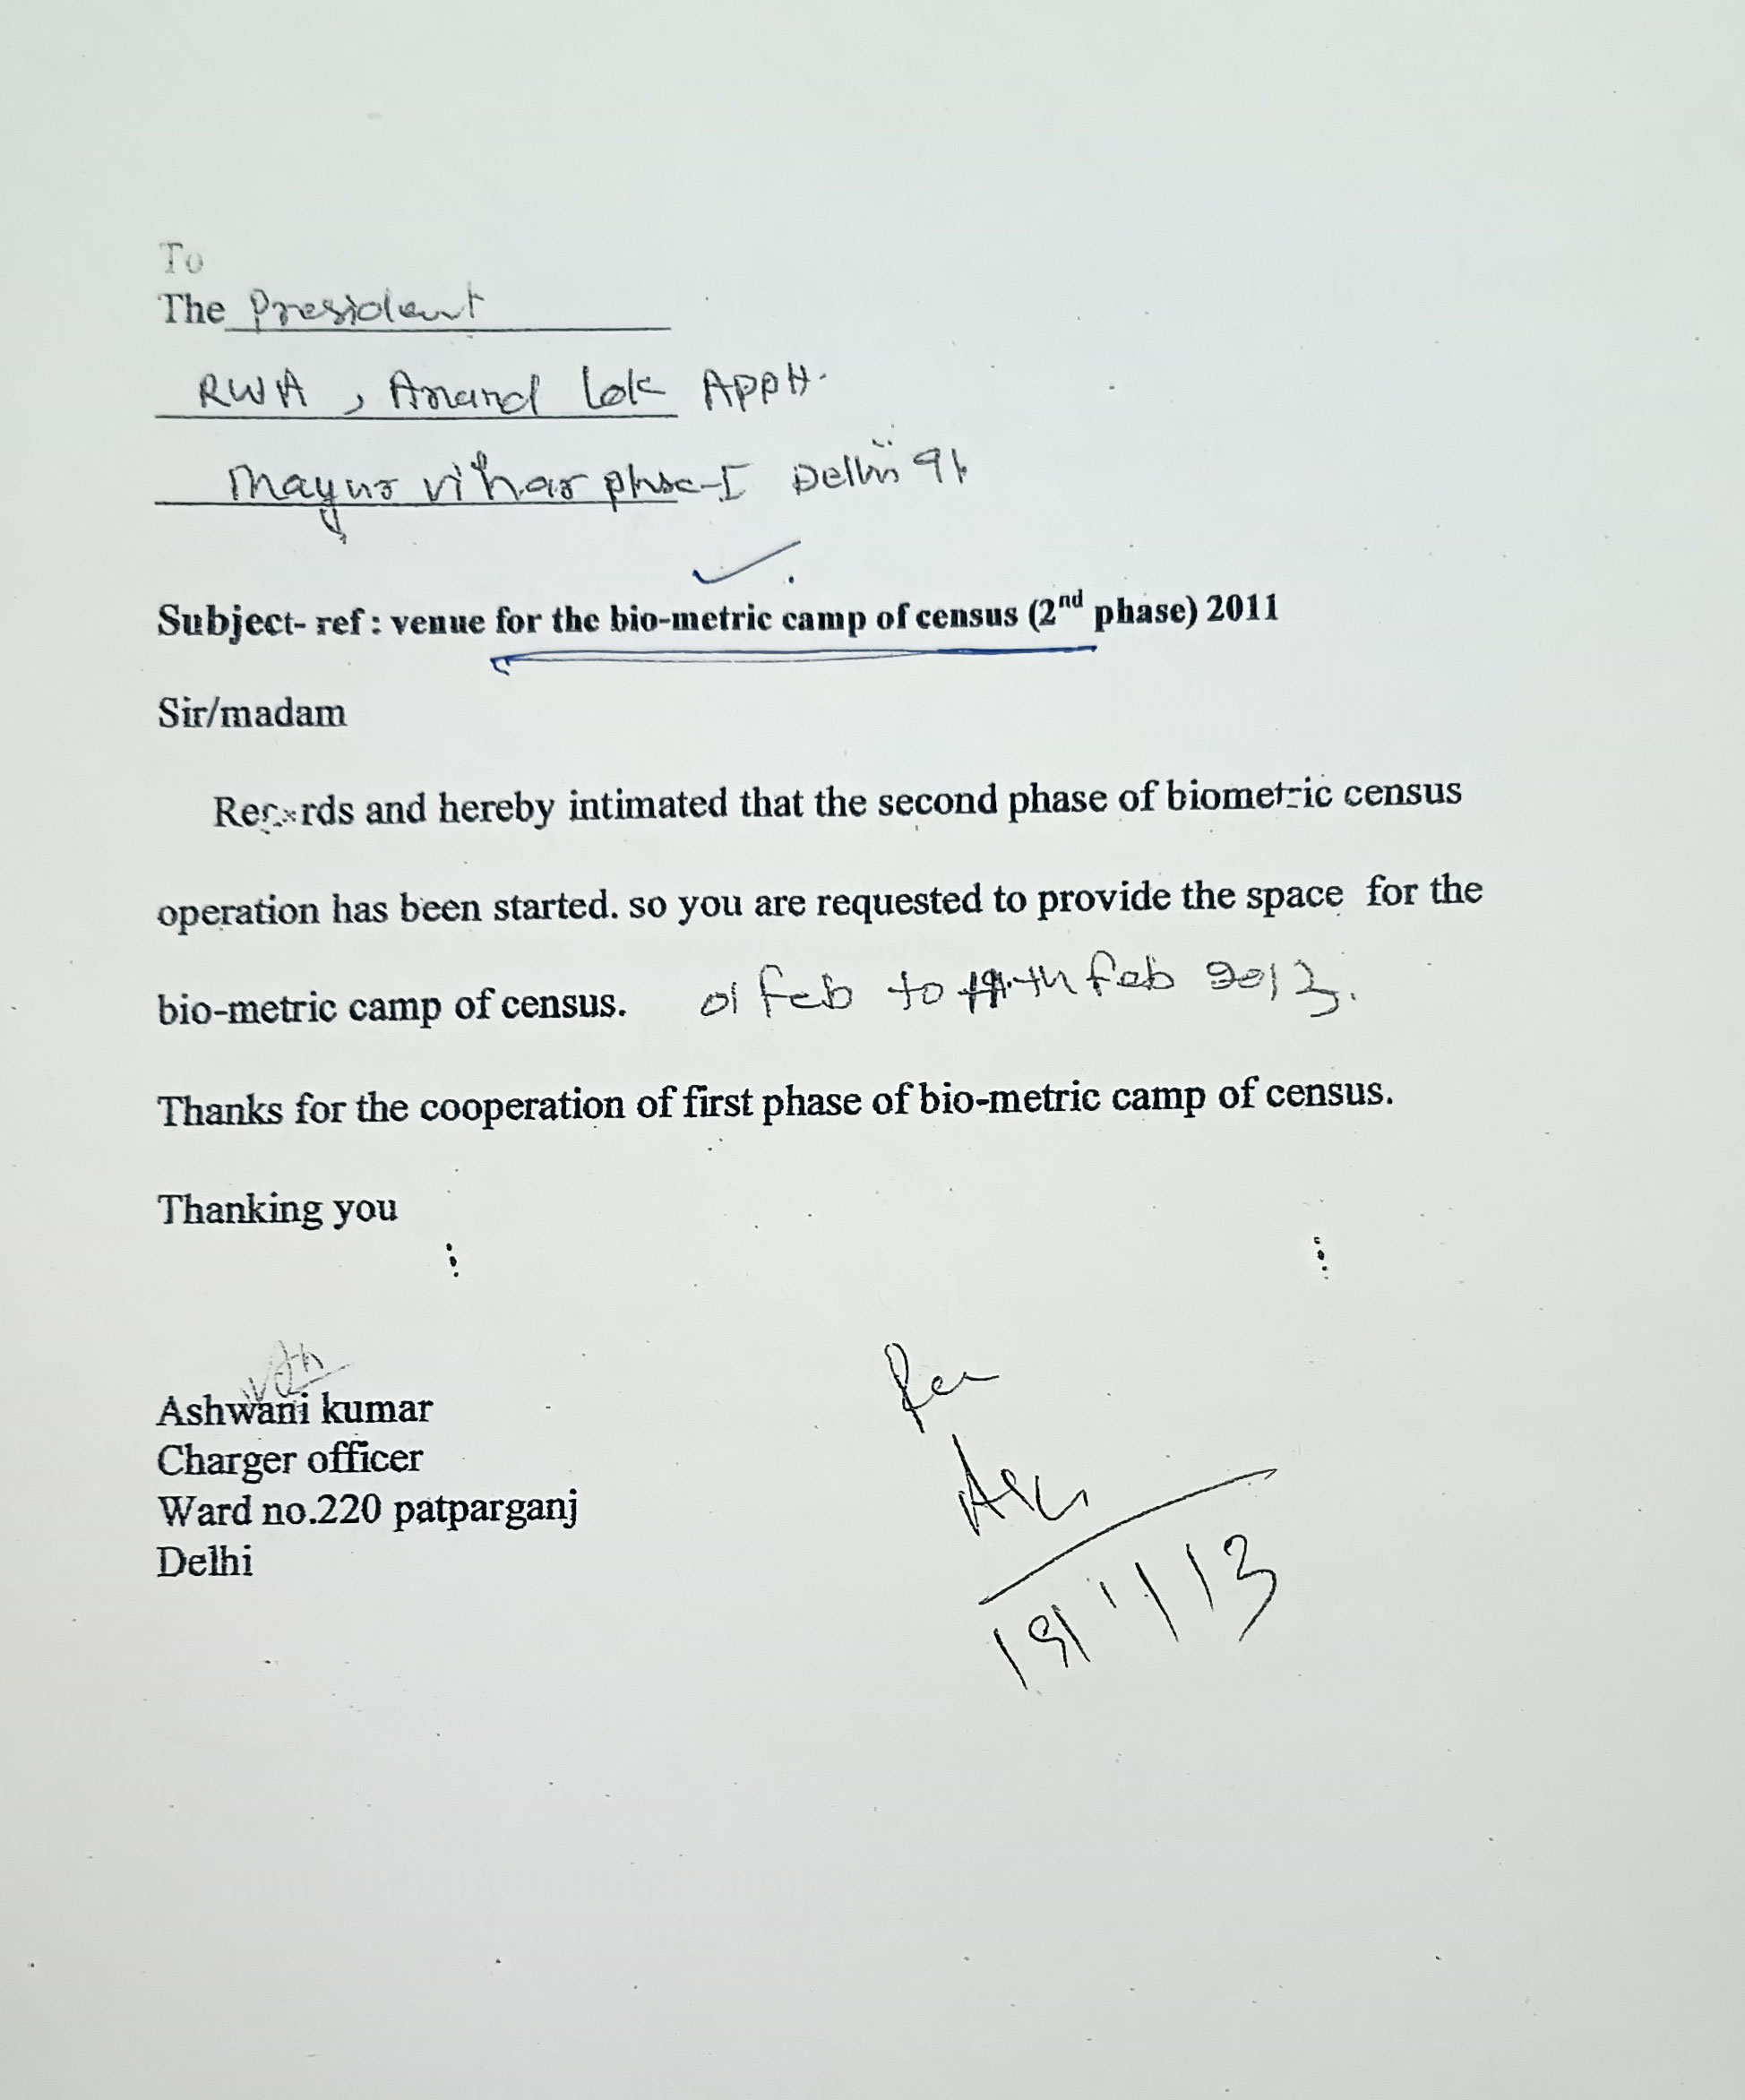 To
The President
RWA, Anand Lok APPtt.
Mayur vihar phse-I Delhi 91
Subject- ref : venue for the bio-metric camp of census (2nd phase) 2011
Sir/madam
and hereby intimated that the second phase of biometric census
operation has been started. so you are requested to provide the space for the
bio-metric camp of census. 01 feb to feb 2013.
Thanks for the cooperation of first phase of bio-metric camp of census.
Thanking you
Ashwani kumar
Charger officer
Ward no.220 patparganj
Delhi